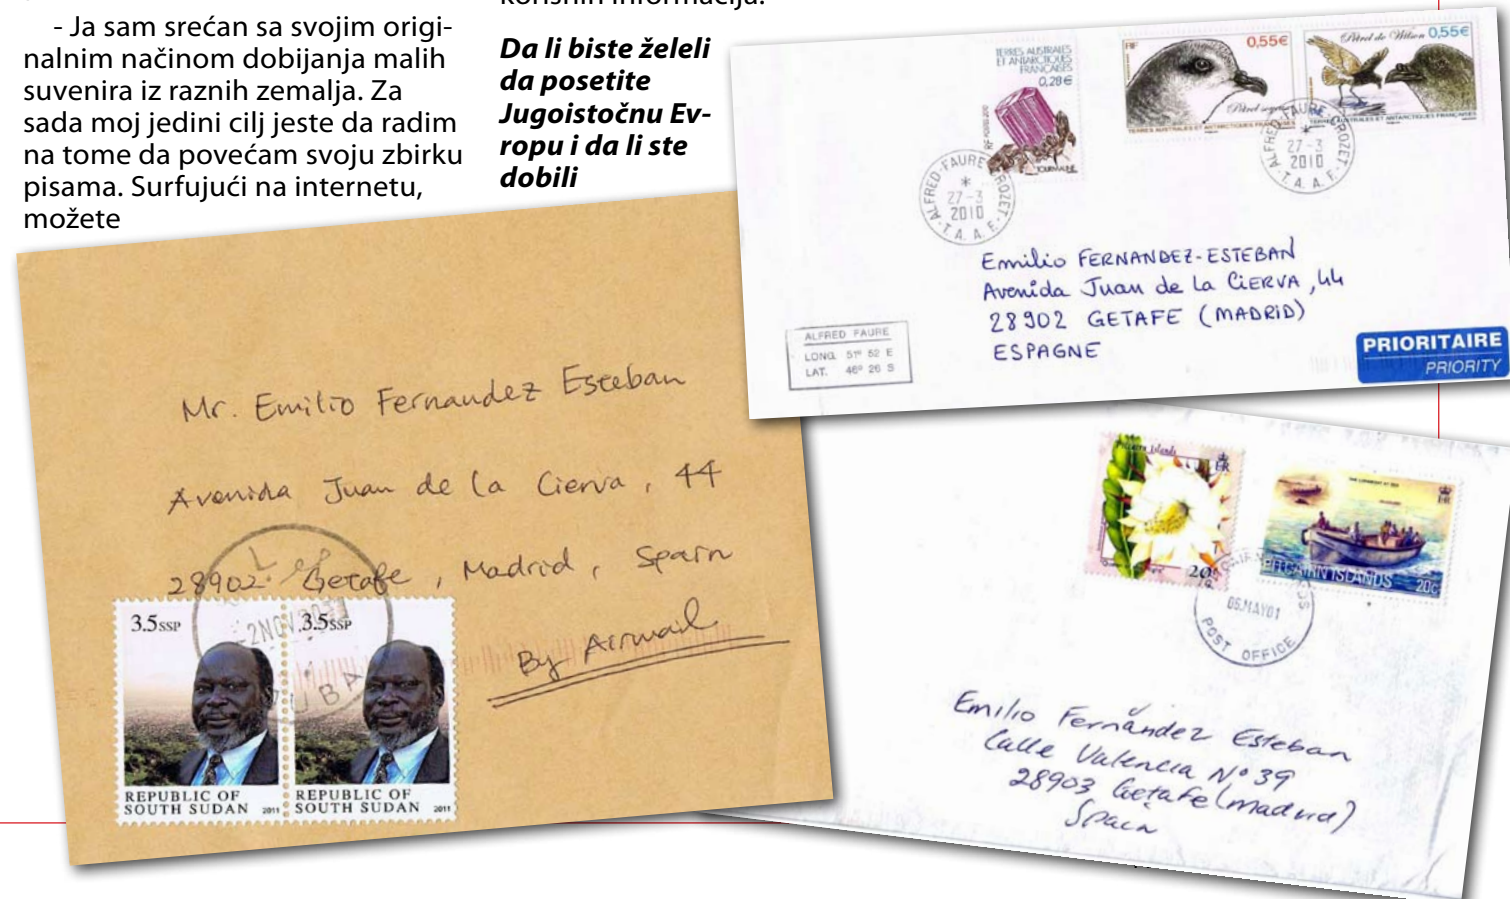 - Ja sam srećan sa svojim origi-
nalnim načinom dobijanja malih
suvenira iz raznih zemalja. Za
sada moj jedini cilj jeste da radim
na tome da povećam svoju zbirku
pisama. Surfujući na internetu,
možete
korisnih informacija.
Da li biste želeli
da posetite
Jugoistočnu Ev-
ropu i da li ste
dobili
TERRES AUSTRALES
ET ANTARCTIQUES
FRANÇAISES
0,28 €
RF
TOURMALINE
RF
0,55€
TERRES AUSTRALES ET ANTARCTIQUES FRANÇAISES
Pétrel de Wilson
0,55€
TERRES AUSTRALES ET ANTARCTIQUES FRANÇAISES
ALFRED-FAURE CROZET
27-3
2010
T. A. A. F.
ALFRED-FAURE CROZET
27-3
2010
T. A. A. F.
Emilio FERNANDEZ-ESTEBAN
Avenida Juan de La CIERVA, 44
28902 GETAFE (MADRID)
ESPAGNE
ALFRED FAURE
LONG. 51° 52 E
LAT. 46° 26 S
PRIORITAIRE
PRIORITY
Mr. Emilio Fernandez Esteban
Avenida Juan de la Cierva, 44
28902 Getafe, Madrid, Spain
By Airmail
2NOV
JUBA
3.5SSP
REPUBLIC OF
SOUTH SUDAN 2011
3.5SSP
REPUBLIC OF
SOUTH SUDAN 2011
Pitcairn Islands
20c
PITCAIRN ISLANDS 20c
05.MAY01
POST OFFICE
Emilio Fernández Esteban
Calle Valencia Nº 39
28903 Getafe (Madrid)
Spain